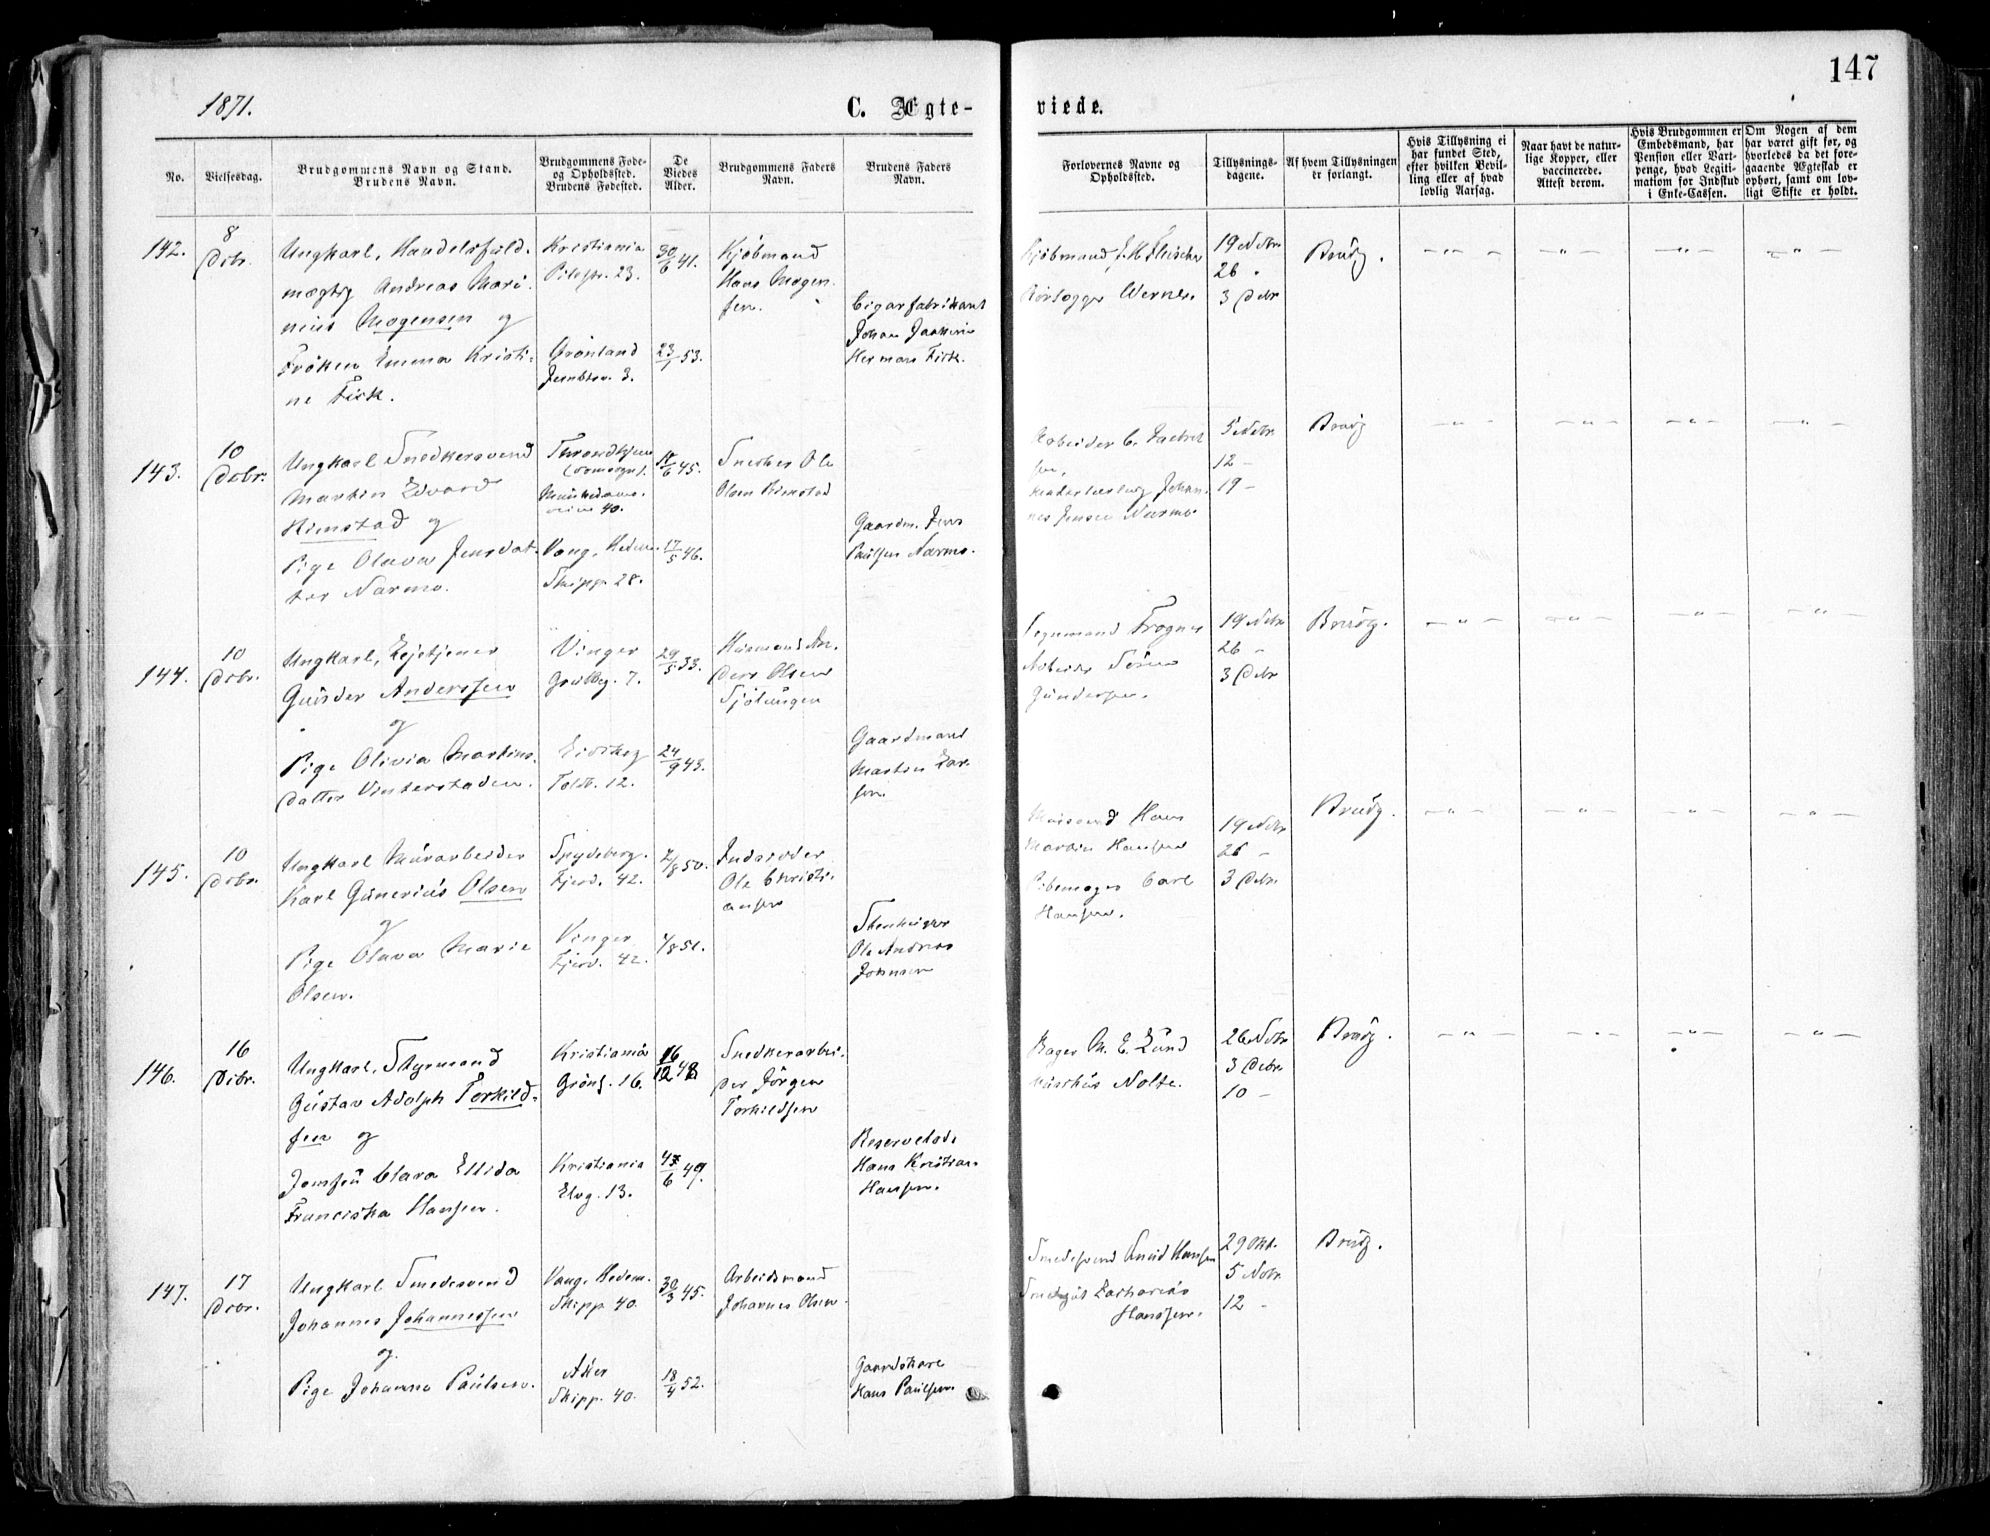 147
1871.
C. Ægte-
viede.
No.
Vielsesdag.
Brudgommens Navn og Stand.
Brudens Navn.
Brudgommens Føde-
og Opholdssted.
Brudens Fødested.
De
Viedes
Alder.
Brudgommens Faders
Navn.
Brudens Faders
Navn.
Forlovernes Navne og
Opholdssted.
Tillysnings-
dagene.
Af hvem Tillysningen
er forlangt.
Hvis Tillysning ei
har fundet Sted,
efter hvilken Bevil-
ling eller af hvad
lovlig Aarsag.
Naar havt de natur-
lige Kopper, eller
vaccinerede.
Attest derom.
Hvis Brudgommen er
Embedsmand, har
Pension eller Vart-
penge, hvad Legiti-
mation for Indskud
i Enke-Cassen.
Om Nogen af dem
har været gift før, og
hvorledes da det fore-
gaaende Ægteskab er
ophørt, samt om lov-
ligt Skifte er holdt.
142.
8
Dcbr.
Ungkarl, Handelsfuld-
mægtig Andreas Mari-
nius Mogensen og
Frøken Emma Kristi-
ne Fisk.
Kristiania
Pilestr. 23.
Grønland
Jernbtor. 3.
30/6 41.
23/1 53.
Kjøbmand
Hans Mogen-
sen.
Cigarfabrikant
Johan
Herman Fisk.
Kjøbmand
Werner.
19 Nvbr
26 "
3 Dcbr
Brudg.
143.
10
Dcbr.
Ungkarl Snedkersvend
Martin Edvard
Rimstad og
Pige Olava Jensdat-
ter Narmo.
Throndhjem
40.
Vang, Hedem.
Skipp. 28.
18/6 45.
17/5 46.
Snedker Ole
Olsen Rimstad
Gaardm. Jens
Paulsen Narmo.
Arbeider C.
sen,
Johan-
nes Jensen Narmo
5 Nvbr
12 -
19 -
Brudg
144.
10
Dcbr.
Ungkarl, Leietjener
Gunder Anderssen
og
Pige Olivia Martins-
datter Vinterstaden.
Vinger
7.
Eidskog
Toldb. 12.
29/5 33.
24/9 43.
Husmand An-
ders Olsen
Gaardmand
Martin Lar-
sen.
Frogner
Arbeider
Gundersen.
19 Nvbr
26 -
3 Dcbr
Brudg.
145.
10
Dcbr.
Ungkarl Murarbeider
Karl Gunerius Olsen
og
Pige Olava Marie
Olsen.
Spydeberg.
Fjerd. 42.
Vinger
Fjerd. 42.
2/8 50.
4/8 51.
Inderoder
Ole Christi-
ansen
Stenhugger
Ole Andreas
Johnsen
Mursvend Hans
Martin Hansen
Pibemager Carl
Hansen.
19 Nvbr
26 -
3 Dcbr
Brudg.
146.
16
Dcbr.
Ungkarl, Styrmand
Gustav Adolph Torkild-
sen og
Jomfru Clara Elida
Franciska Hansen.
Kristiania
Grønl. 16.
Kristiania
Elvg. 13.
16/12 48
6 49.
Snedkerarbei-
der Jørgen
Torkildsen
Reservelods
Hans Kristian
Hansen.
Bager M. E. Lund
Nolte.
26 Nvbr
3 Dcbr
10 -
Brudg.
147.
17
Dcbr.
Ungkarl Smedesvend
Johannes Johannessen
og
Pige Johanne Paulsen.
Vang, Hedem.
Skipp. 40.
Aker
Skipp. 40.
30/3 45.
18/4 52.
Arbeidsmand
Johannes Olsen
Gaardskarl
Hans Paulsen
Smedesvend Knud Hansen
Zacharias
Hanssen.
29 Okt.
5 Nvbr
12 -
Brudg.